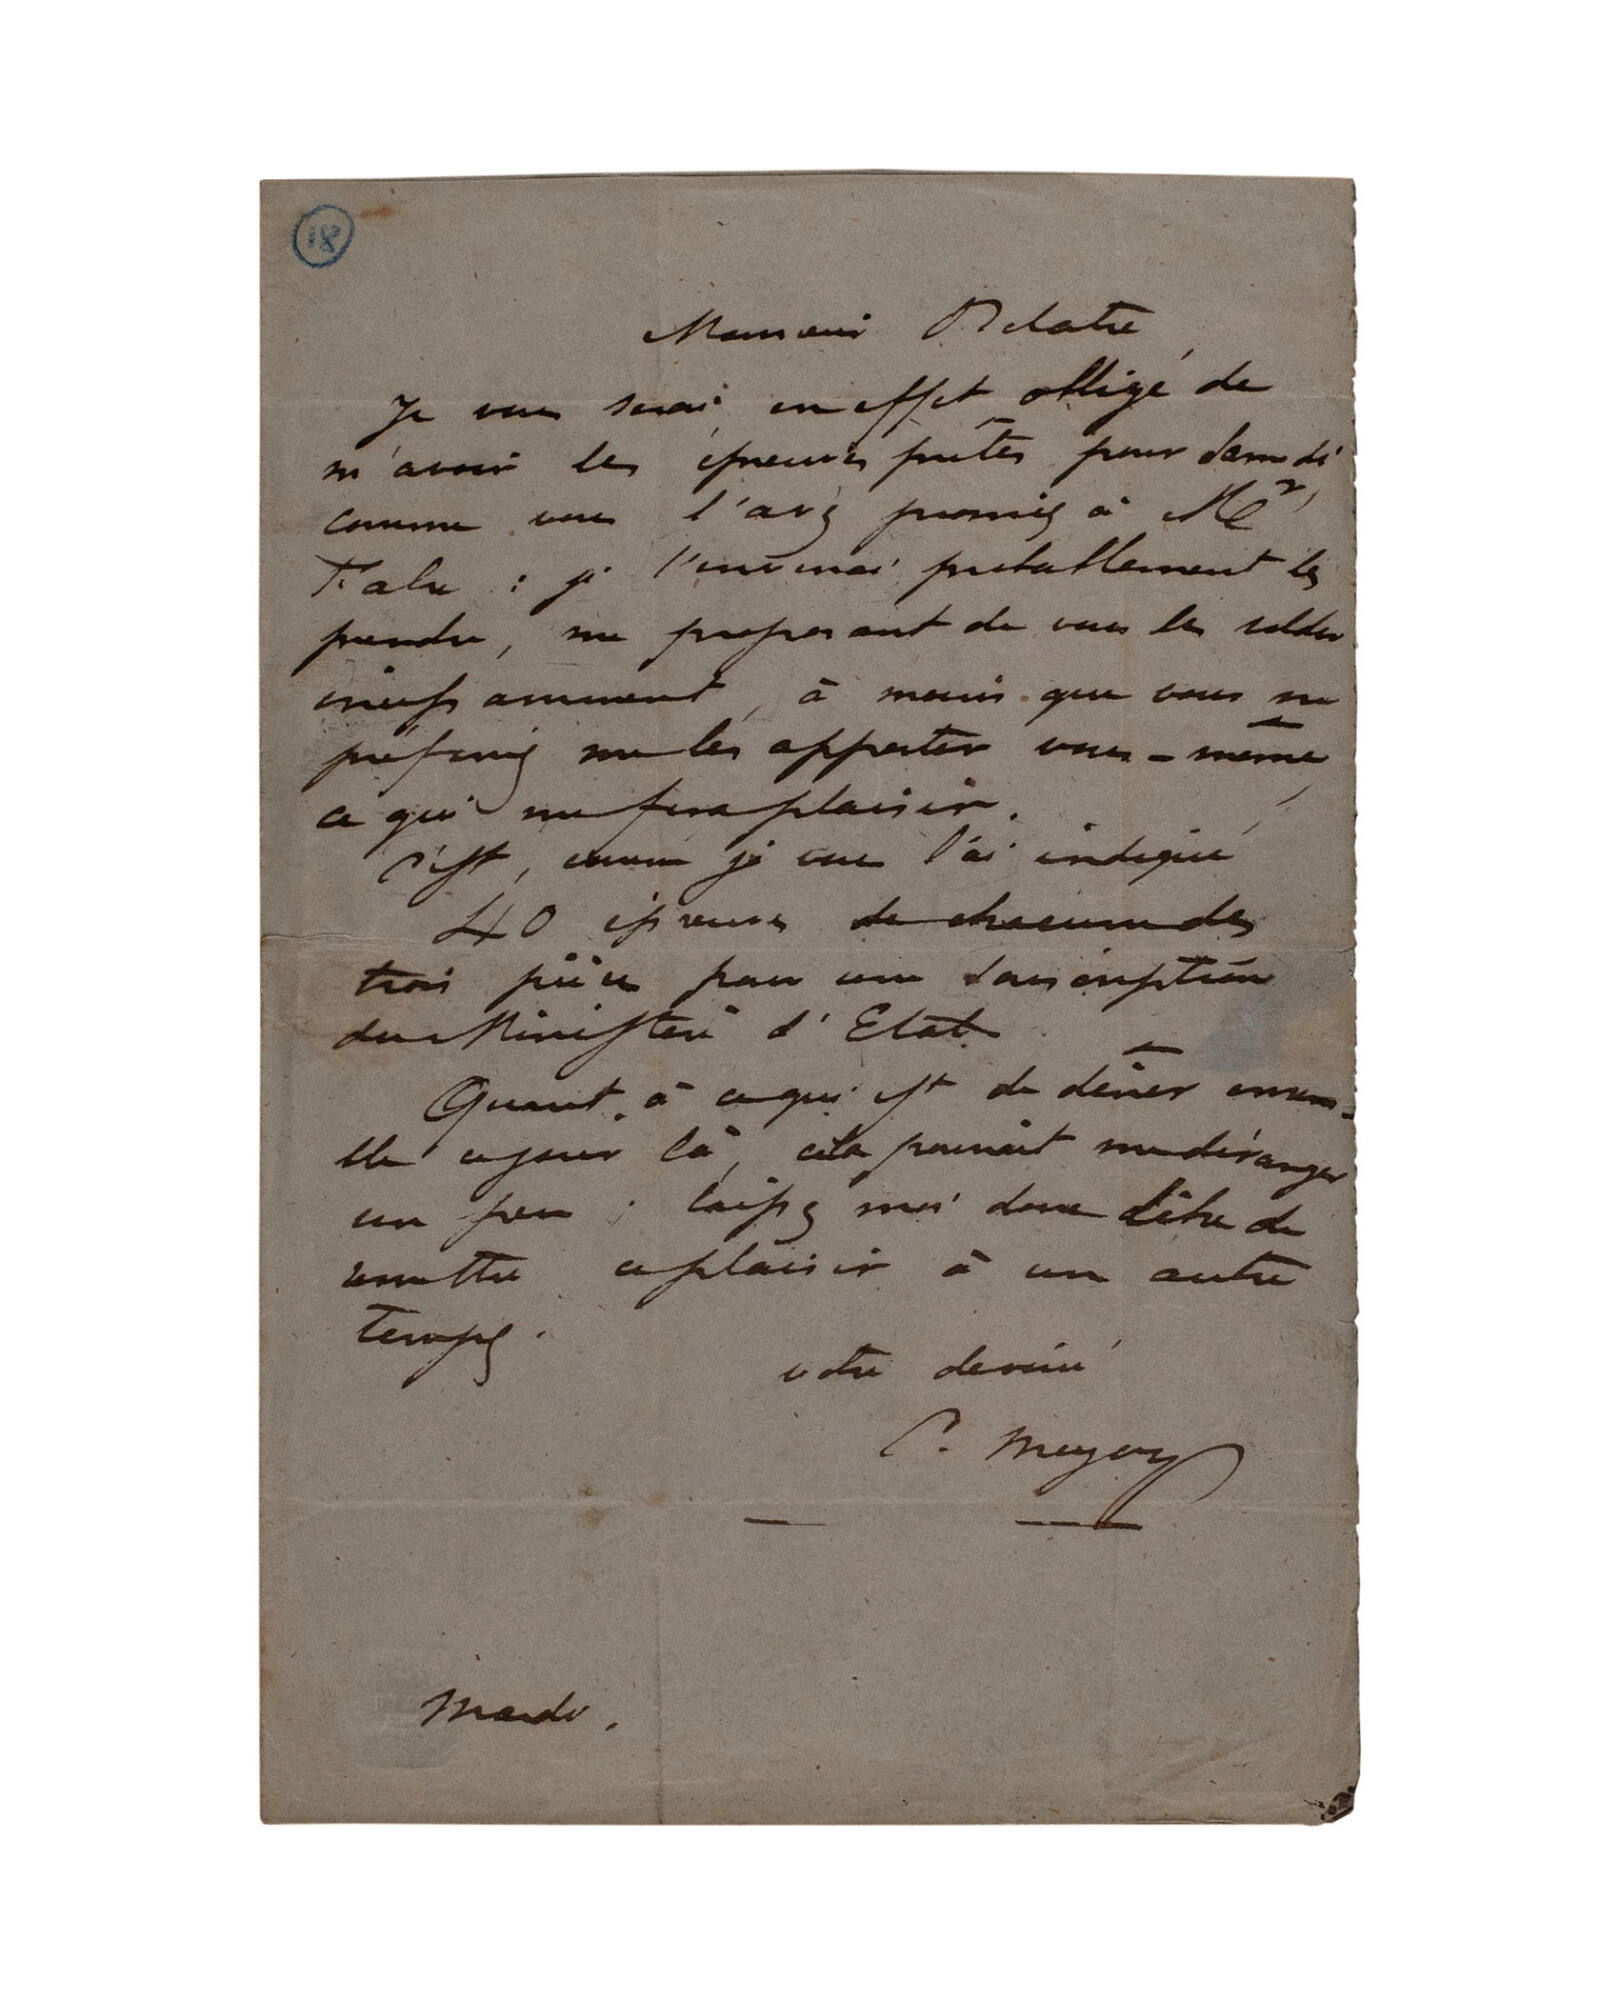 18
Monsieur Delatre
Je vous serai en effet obligé de
m'avoir les épreuves prêtes pour samedi
comme vous l'avez promis à Mr
: je prendre probablement les
prendre, me proposant de vous les solder
incessamment, à moins que vous ne
préferiez me les apporter vous-même,
ce qui me fera plaisir.
C'est, comme je vous l'ai indiqué
40 épreuves de chacune des
trois pièces pour une souscription
du Ministère d'Etat.
Quant à ce qui est de dîner ensem-
ble ce jour là, cela pourrait me déranger
un peu ; laissez moi donc de
remettre ce plaisir à un autre
temps.
votre dévoué
C. Meryon
Mardi.